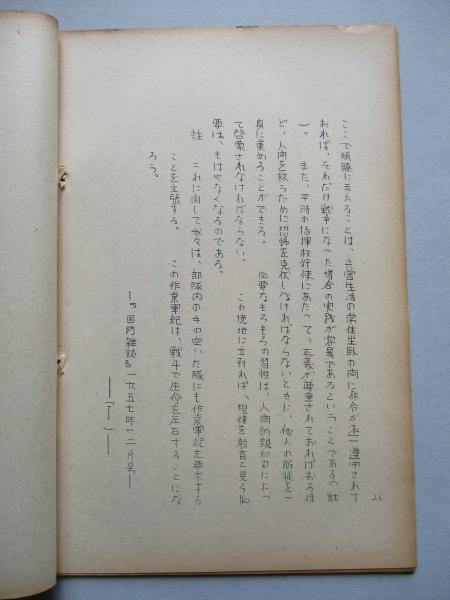 ここで明瞭に云えることは、兵営生活の常住坐臥の間に命令が逐一遵守されて
おれば、それだけ戦争になった場合の実践が容易であるということである(註
一)。 また、平時の指揮权行使にあたって、正義が尊重されておればおるほ
ど、人向を救うために恐怖を克伏しなければならないときに、他人の服従を一
身に集めることができる。 必要なもろもろの習性は、人向的親和力によっ
て啓蒙されなければならない。 この境地に立到れば、指揮を教育と見る必
要は、もはやなくなるのである。
註 これに関して我々は、部隊内の手の空いた隊にも作業軍紀を要求する
ことを主張する。 この作業軍紀は、戦斗で生命を左右することにな
ろう。
―『国防雑誌』一九五七年一二月号―
26